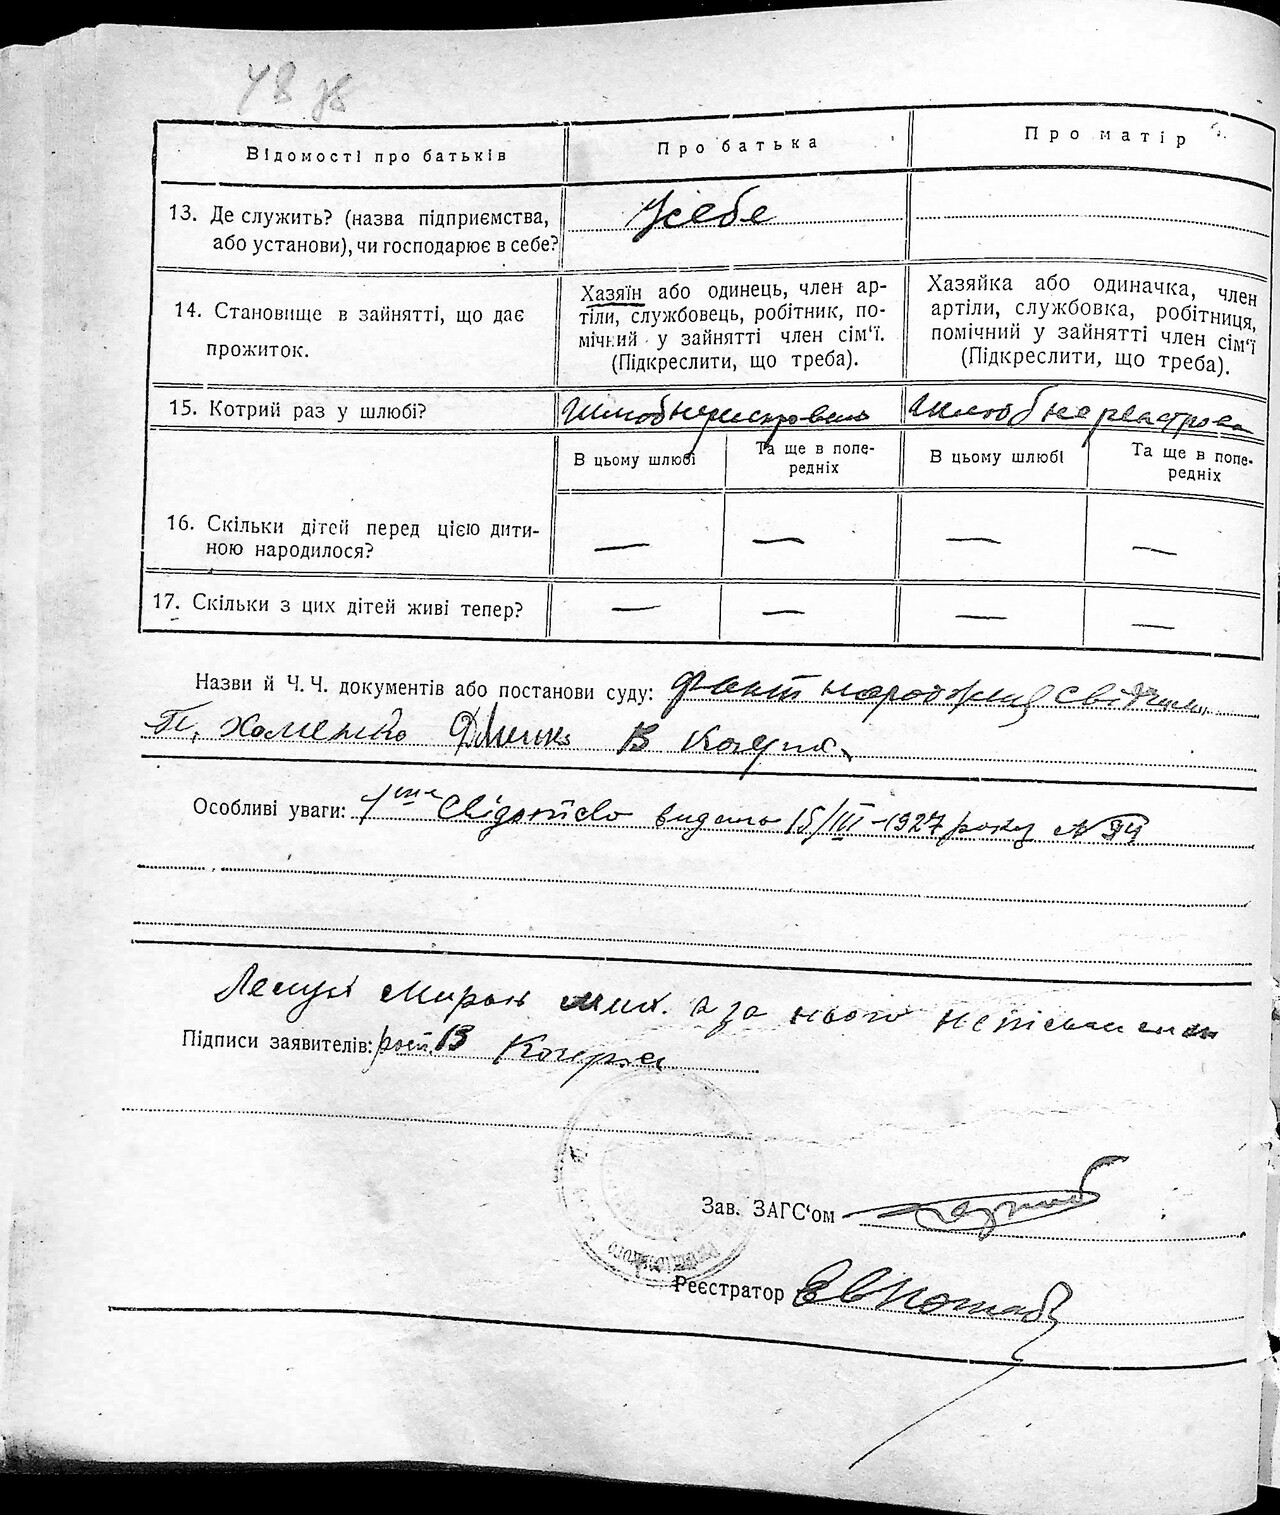 48 зв
Відомості про батьків
Про батька
Про матір
13. Де служить? (назва підприємства,
або установи), чи господарює в себе?
У себе
14. Становище в зайнятті, що дає
прожиток.
Хазяїн або одинець, член ар-
тіли, службовець, робітник, по-
мічний у зайнятті член сім'ї.
(Підкреслити, що треба).
Хазяйка або одиначка, член
артіли, службовка, робітниця,
помічний у зайнятті член сім'ї
(Підкреслити, що треба).
15. Котрий раз у шлюбі?
Шлюб
Шлюб не
В цьому шлюбі
Та ще в попе-
редніх
В цьому шлюбі
Та ще в попе-
редніх
16. Скільки дітей перед цією дити-
ною народилося?
— — — —
17. Скільки з цих дітей живі тепер?
— — — —
Назви й Ч. Ч. документів або постанови суду: Факт народження
Хоменко В
Особливі уваги: Свідоцтво видано 15/III-1927 року №
Мирон за нього
Підписи заявителів: В
Зав. ЗАГС'ом
Реєстратор